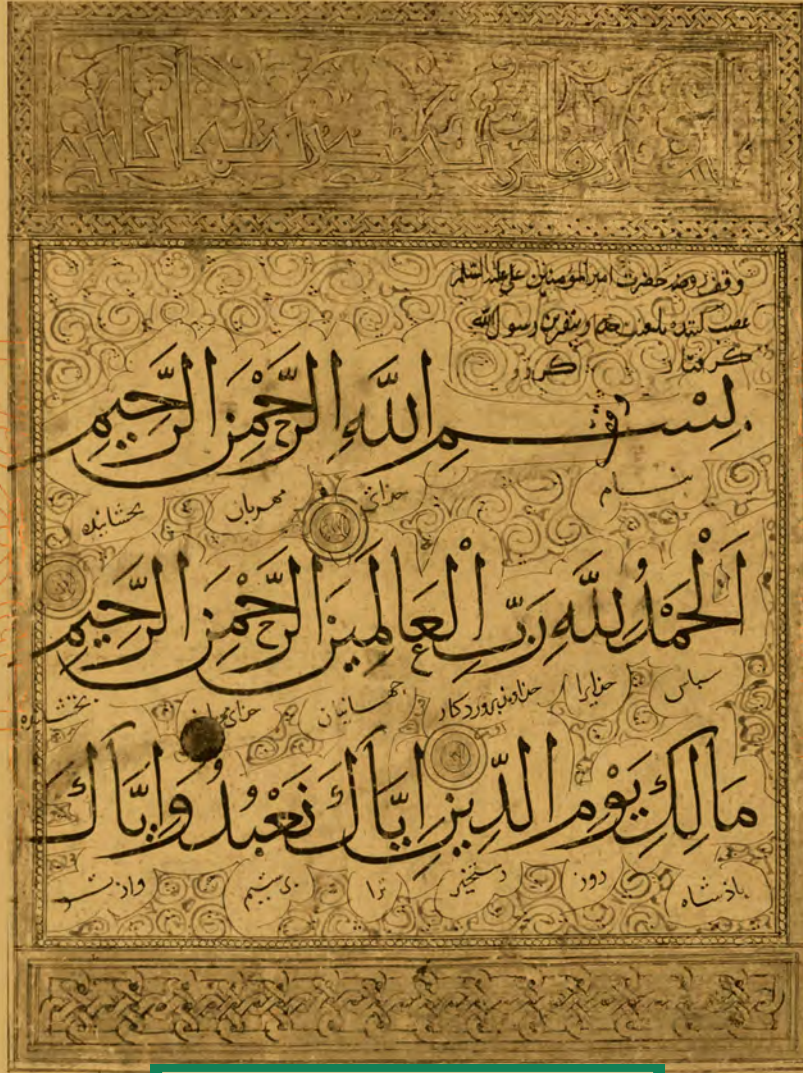 وقف روضه حضرت امیر المؤمنین علی علیه السلم
غصب کننده بلعنت خدا و بنفرین رسول الله
کرفتار کردد
وقف
بِسْمِ اللَّهِ الرَّحْمٰنِ الرَّحِيمِ
بنام خدای مهربان بخشاینده
اَلْحَمْدُ لِلَّهِ رَبِّ الْعَالَمِينَ الرَّحْمٰنِ الرَّحِيمِ
سباس خدایرا خداوند بروردکار جهانیان خدای مهربان بخشاینده
مَالِكِ يَوْمِ الدِّينِ اِيَّاكَ نَعْبُدُ وَاِيَّاكَ
باذشاه روز رستخیز ترا برستیم واز تو